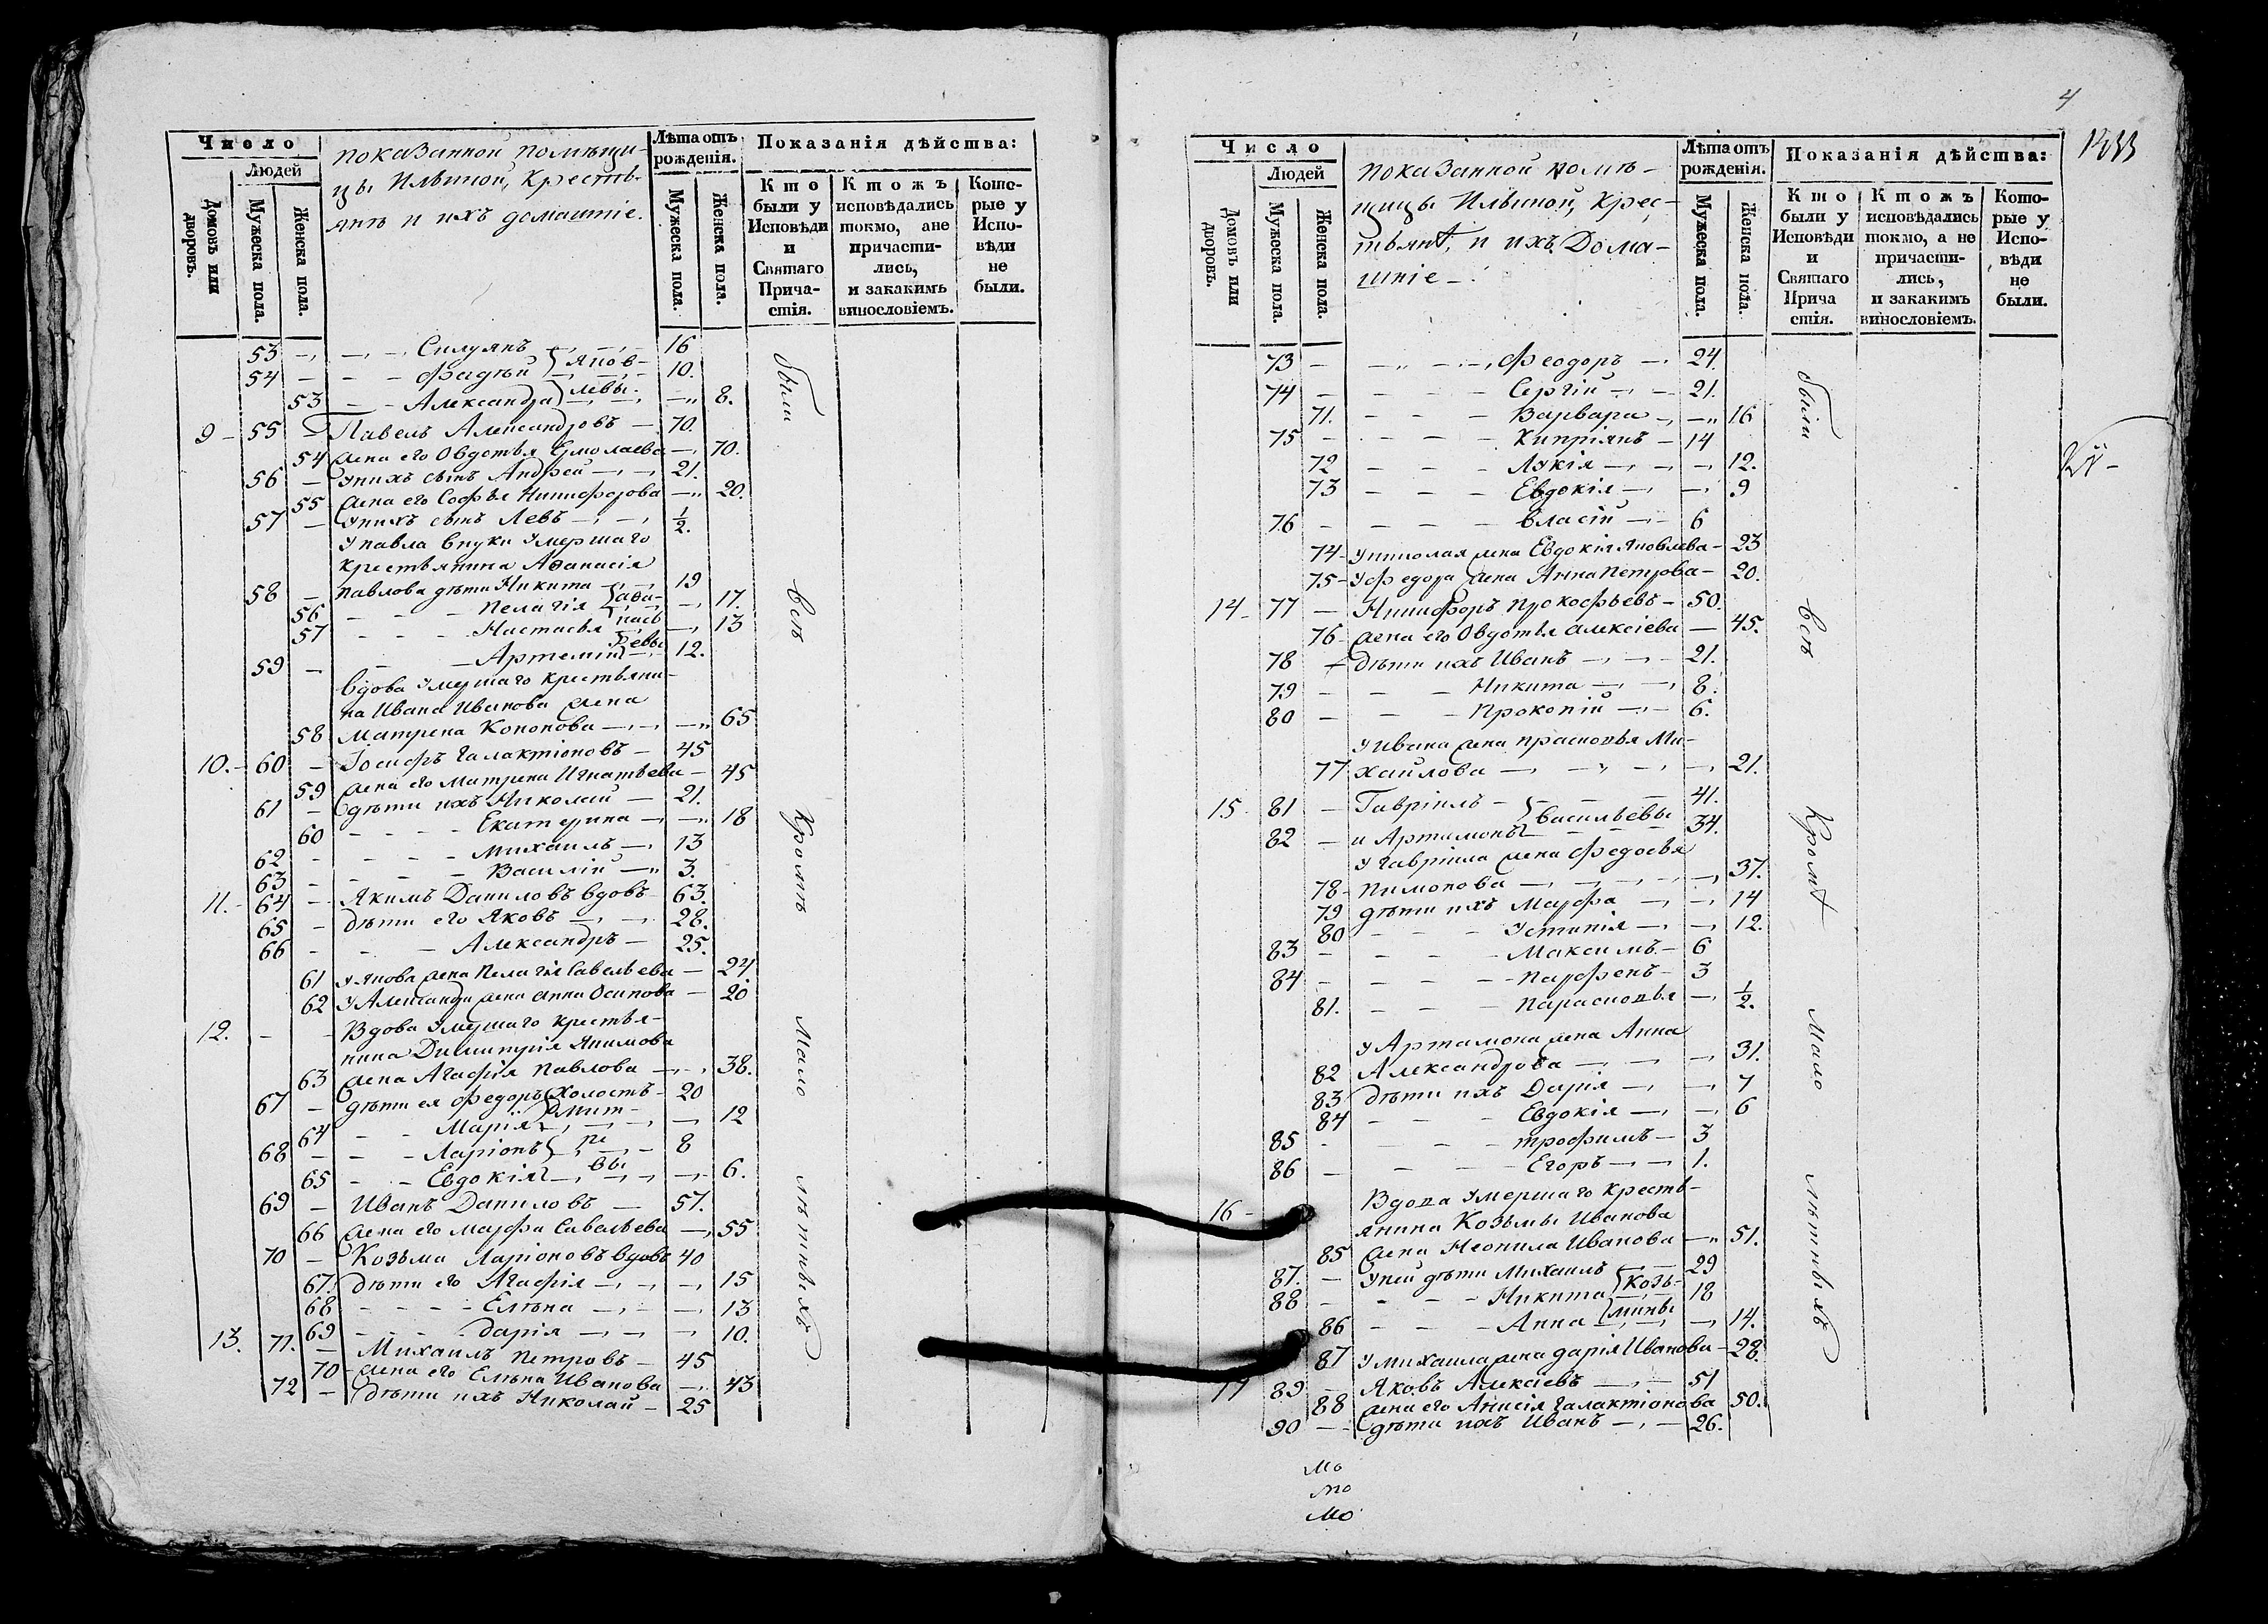 Число
Людей
Домовъ или дворовъ.
Мужеска пола.
Женска пола.
показанной помѣщи-
цы Ильиной, Кресть-
янъ и ихъ домашніе.
Лѣта отъ рожденія.
Мужеска пола.
Женска пола.
Показанія дѣйства:
Кто были у Исповѣди и Святаго Прича-стія.
Ктожъ исповѣдались токмо, ане причасти-лись, и закакимъ винословіемъ.
Кото-рые у Испо-вѣди не были.
53 Силуянъ 16
54 Фадѣй } Яков- 10.
53 Александра } левы. 8.
9 - 55 Павелъ Александровъ - 70.
54 жена его Овдотья Ермолаева 70.
56 - у нихъ сынъ Андрей 21.
55 жена его Софья Никифорова 20.
57 - у нихъ сынъ Левъ ½.
у павла внуки умершаго
крестьянина Аѳанасія
58 - павлова дѣти Никита 19
56 - Пелагія } аѳа- 17.
57 - Настасья } нась 13
59 - Артемій } евы 12.
вдова умершаго крестьяни-
на Ивана Иванова жена
58 Матрена Кононова 65
10. - 60 - Іосифъ Галактіоновъ - 45
59 жена его Матрена Игнатьева - 45
61 - дѣти ихъ Николай - 21.
60 - Екатерина 18
62 - Михаилъ 13
63 - Василій 3.
11. - 64 - Якимъ Даниловъ вдовъ - 63.
65 - дѣти его Яковъ 28.
66 - Александръ - 25.
61 у Якова жена Пелагія Савельева - 24.
62 у Александра жена Анна Осипова - 20
12. - - Вдова умершаго крестья-
нина Димитрія Якимова
63 жена Агафія Павлова 38.
67 - дѣти ея Федоръ холостъ - 20
64 - Марія } Дмит- 12
68 - Ларіонъ } рі 8
65 - Евдокія } вы 6.
69 - Иванъ Даниловъ - 57.
66 жена его Марфа Савельева 55
70 - Козьма Ларіоновъ вдовъ 40
67. дѣти его Агафія 15
68 - Елѣна 13
69 - дарія 10.
13. 71. - Михаилъ Петровъ - 45
70 - жена его Елѣна Иванова 43
72 - дѣти ихъ Николай - 25
были
всѣ
Кромѣ
Мало
лѣтныхъ
4
Число
Людей
Домовъ или дворовъ.
Мужеска пола.
Женска пола.
показанной помѣ-
щицы Ильиной, Крес-
тьянъ, и ихъ Дома-
шніе -
Лѣта отъ рожденія.
Мужеска пола.
Женска пола.
Показанія дѣйства:
Кто были у Исповѣди и Святаго Прича стія.
Ктожъ исповѣдались токмо, а не причасти-лись, и закакимъ винословіемъ.
Кото-рые у Испо-вѣди не были.
73 - Феодоръ 24.
74 - Сергій 21.
71. - Варвара 16
75 - Кипріянъ - 14
72 - Лукія 12.
73 - Евдокія 9
76 - власій 6
74 - у николая жена Евдокія Яковлева - 23
75 - у Федора жена Анна Петрова - 20.
14 - 77 - Никифоръ Прокофьевъ - 50.
76 - жена его Овдотья алексіева - 45.
78 - дѣти ихъ Иванъ 21.
79 - Никита 8.
80 - Прокопій 6.
у ивана жена прасковья Ми-
77 хайлова 21.
15 - 81 - Гавріилъ - 41.
} васильевы
82 - и Артамонъ 34.
у гавріила жена Федосья
78 - пимонова 37.
79 дѣти ихъ Марфа 14
80 - Устинія 12.
83 - Максимъ - 6
84 - парфенъ - 3
81. - Парасковья ½.
у Артамона жена Анна
82 Александрова 31.
83 дѣти ихъ Дарія 7
84 - Евдокія 6
85 - трофимъ - 3
86 - Егоръ 1.
16 - Вдова умершаго кресть-
янина Козьмы Иванова
85 жена Неонила Иванова 51.
87. - у ней дѣти Михаилъ 29
88 - Никита } Козь- 18
86 - Анна } мины 14.
87 у михаила жена дарія Иванова - 28.
17 89 - Яковъ Алексіевъ 51
88 жена его Анисія Галактіонова 50.
90 - дѣти ихъ Иванъ 26.
были
всѣ
Кромѣ
Мало
лѣтныхъ
мо
мо
мо